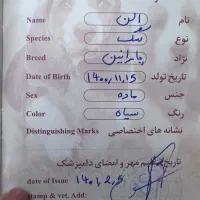 Name الن نام
Species سگ نوع
Breed نژاد
Date of Birth ۱۴۰۰,۱۱,۱۵ تاریخ تولد
Sex ماده جنس
Color سیاه رنگ
Distinguishing Marks نشانه های اختصاصی
تاریخ مهر و امضای دامپزشک
date of Issue ۱۴۰۱,۲,۵
stamp & vet. Add: